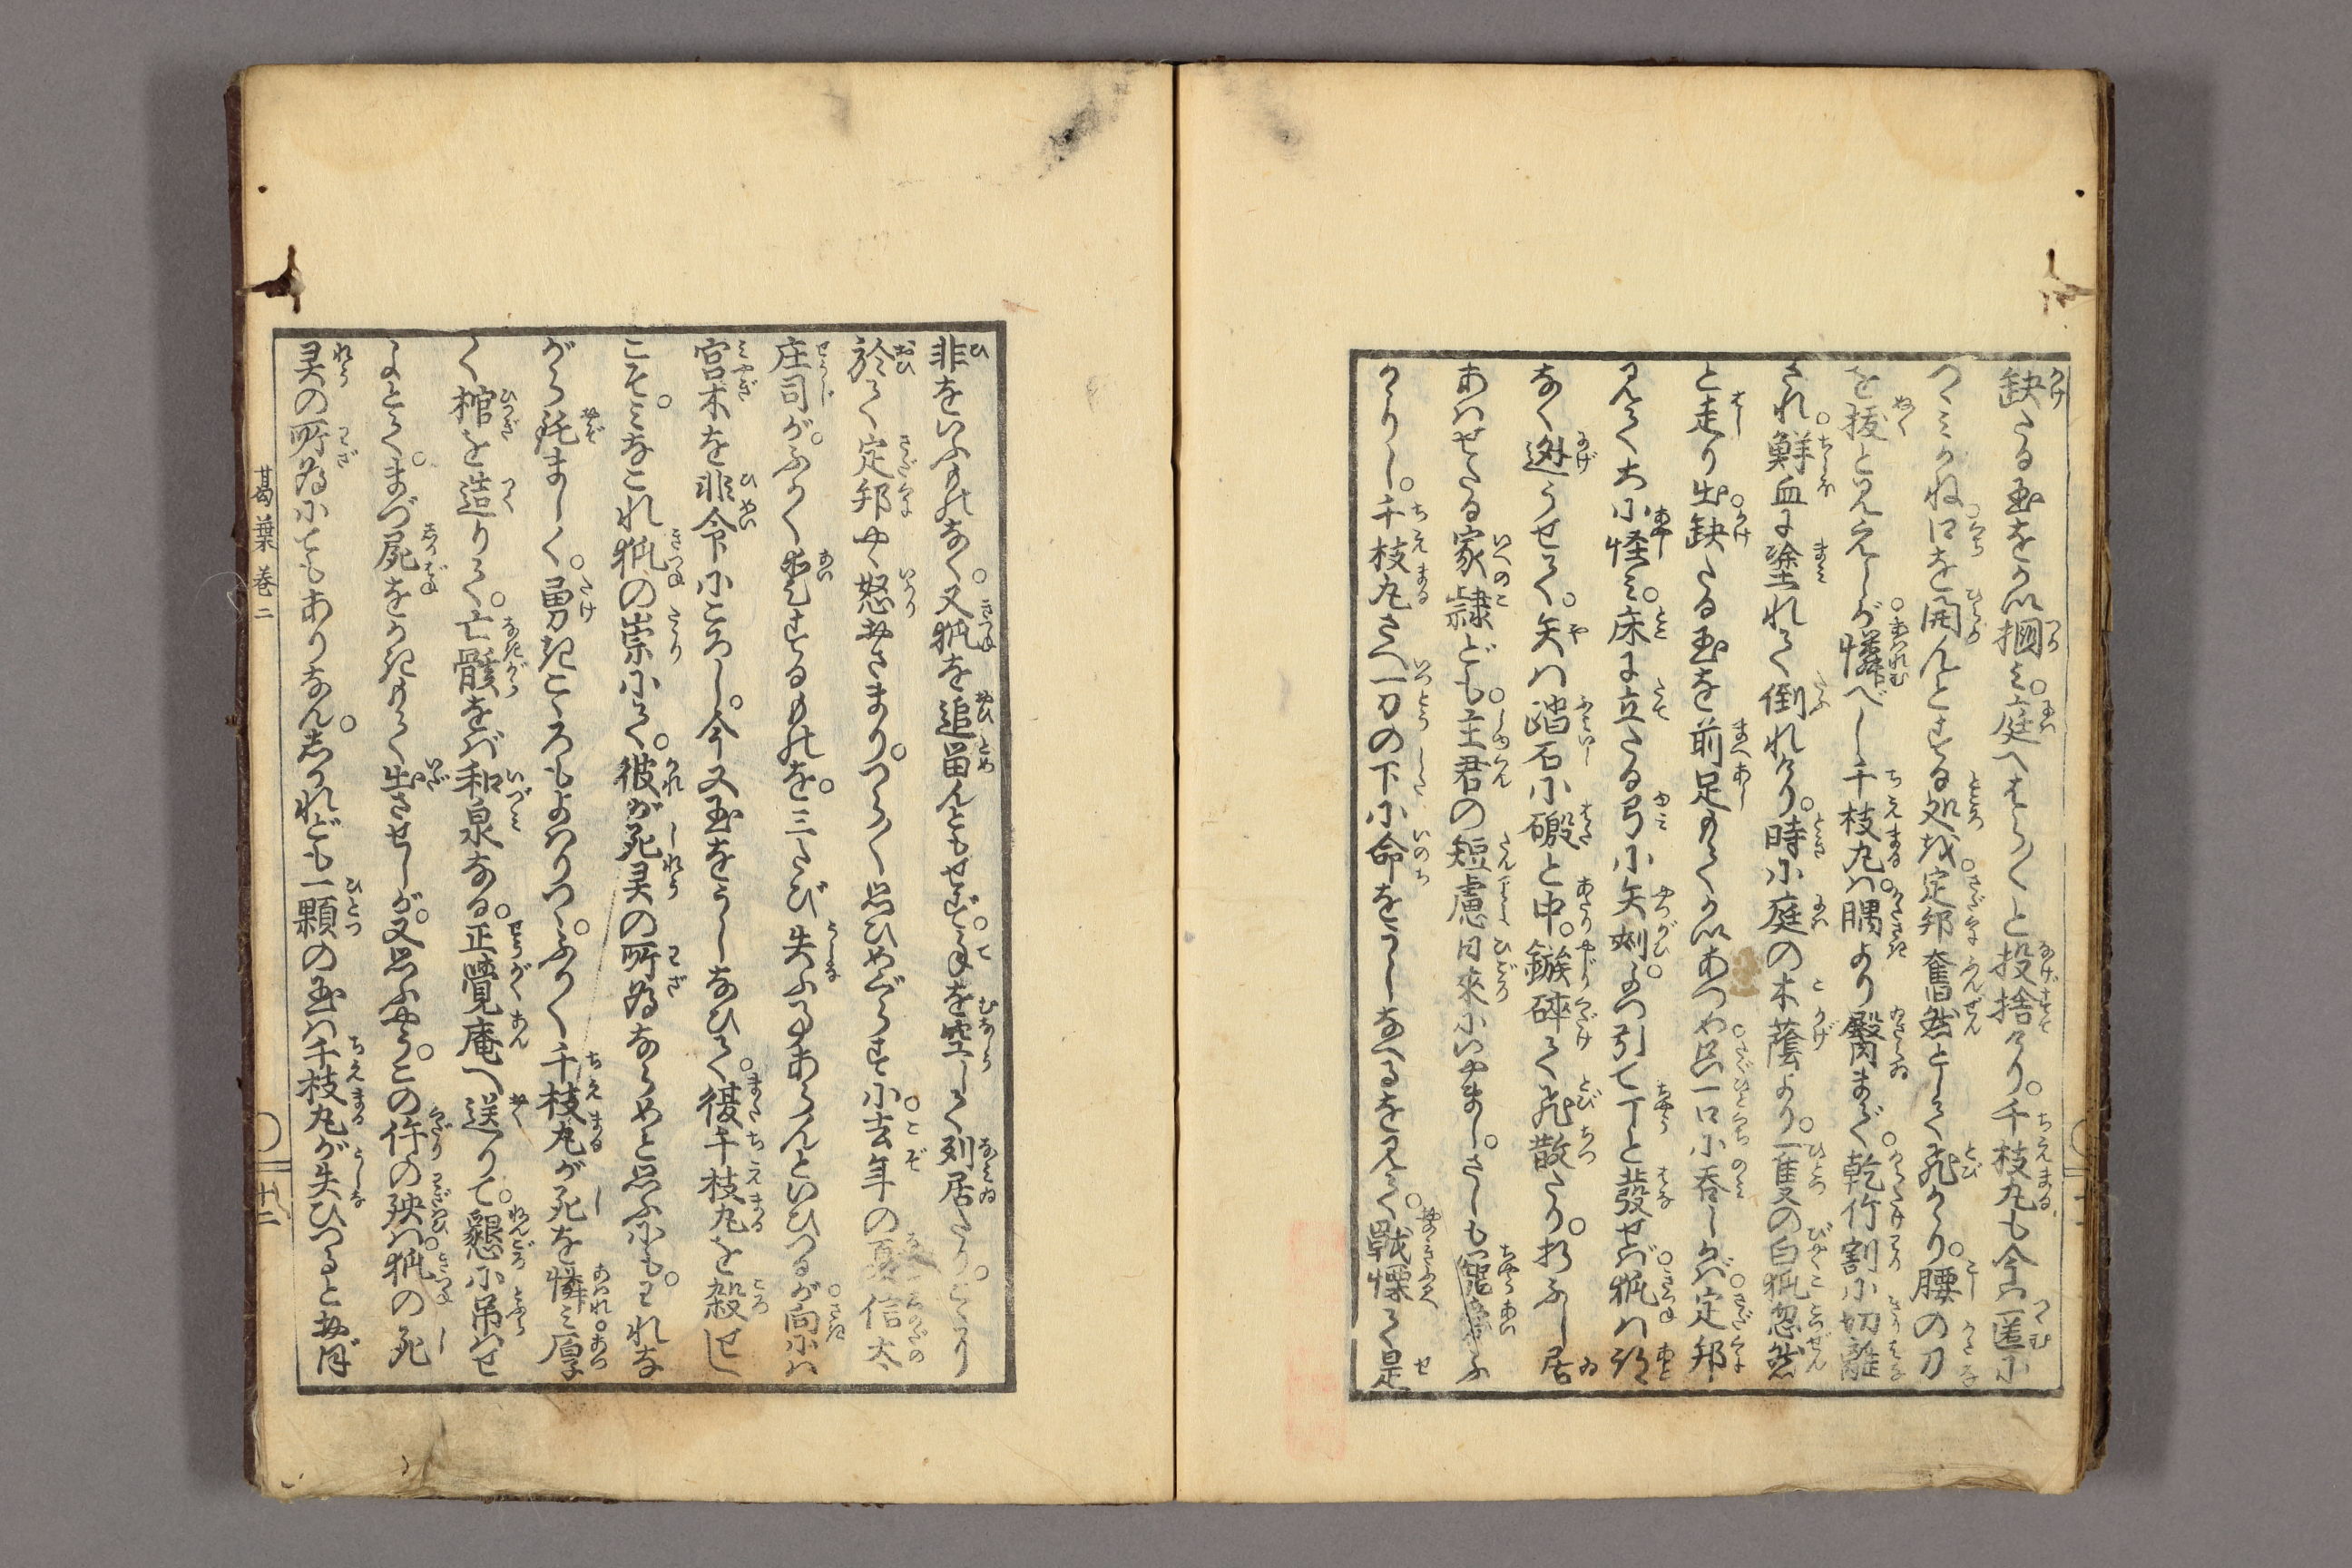 缺たる玉をかい掴み。庭へはら〳〵と投捨けり。千枝丸も今は匿に
つみかね口を開んとする処を。定邦奮然として飛かゝり。腰の刀
を抜と見えしが。憐べし千枝丸は。腭より臀まで。乾竹割に切離
され。鮮血に塗れて倒れけり。時に庭の木蔭より。一隻の白狐忽然
と走り出。缺たる玉を前足もてかいあつめ。只一口に呑しかば。定邦
見て大に怪み。床に立たる弓に矢刻ひ。よつ引て丁と發せば。狐は跡
なく逃うせて。矢は踏石に礑と中。鏃碎て飛散たり。折ふし居
あはせたる家隷ども。主君の短慮日来にいやまし。さしも寵愛ふ
かゝりし。千枝丸さへ一刀の下に命をうしなへるを見て。戰慄て是
非をいふものなく。又狐を追畄んともせず。手を空しく列居たり。こゝに
於て定邦やゝ怒おさまり。つら〳〵思ひめぐらすに。去年の夏信太
庄司が。ふかく愛するものを。三たび失ふ事あらんといひつるが。向には
宮木を非命にころし。今又玉をうしなひて。復千枝丸を殺せし
こそ。みなこれ狐の祟にて。彼が死灵の所為ならめと思ふにも。われな
がら耻ましく。勇きこゝろもよはりつゝ。ふかく千枝丸が死を憐み。厚
く棺を造りて。亡骸をば和泉なる。正覺庵へ送りて。懇に吊はせ
んとて。まづ屍をかきもて出させしが。又思ふやう。この件の殃は。狐の死
灵の所為にてもありなん。しかれども一顆の玉は千枝丸が失ひつると・おぼ
葛葉 巻二
十二